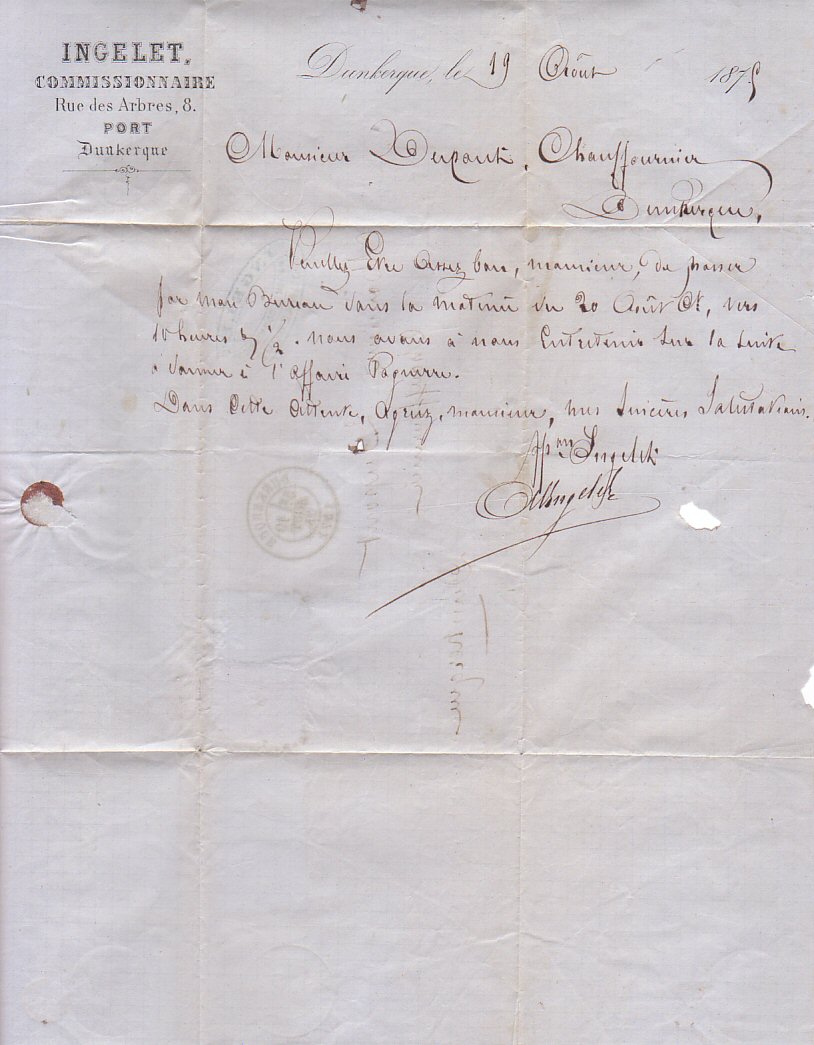 INGELET,
COMMISSIONNAIRE
Rue des Arbres, 8.
PORT
Dunkerque
Dunkerque, le 19 Août 1875
Monsieur Dupont, Chauffournier
Dunkerque,
Veuillez Etre Assez bon, monsieur, de passer
par mon Bureau dans la matinée du 20 Août Ct, vers
10 heures & 1/2. nous avons à nous Entretenir Sur la Suite
à donner à l'affaire
Dans Cette Attente, Agréez, monsieur, mes Sincères Salutations.
Ingelet